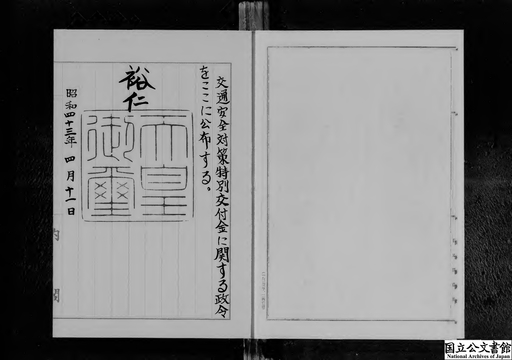 交通安全対策特別交付金に関する政令
をここに公布する。
裕仁
天皇
御璽
昭和四十三年四月十一日
内閣
国立公文書館
National Archives of Japan